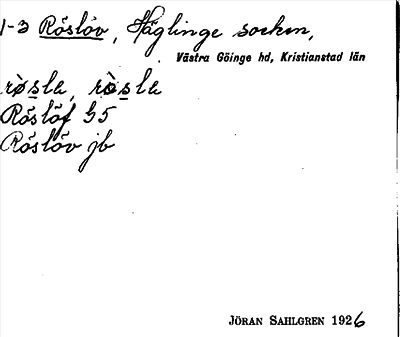 1-3 Röslöv, Häglinge socken,
Västra Göinge hd, Kristianstad län
røsla, ròsla
Röslöf G5
Röslöv jb
JÖRAN SAHLGREN 1926